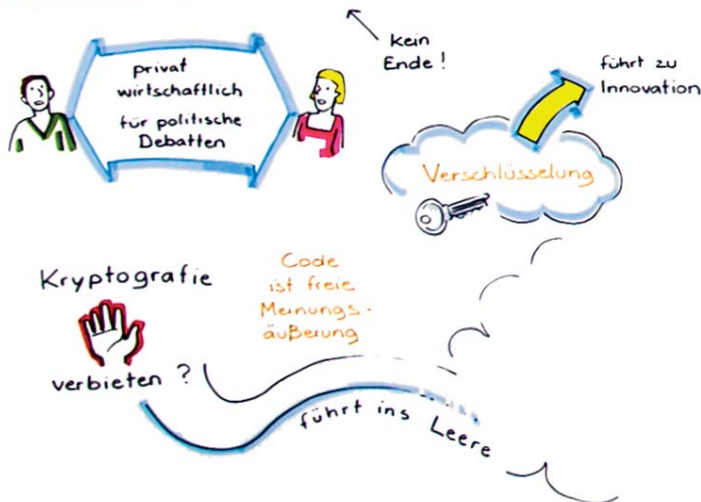 kein
Ende!
privat
wirtschaftlich
für politische
Debatten
führt zu
Innovation
Verschlüsselung
Kryptografie
verbieten ?
Code
ist freie
Meinungs-
äußerung
führt ins Leere